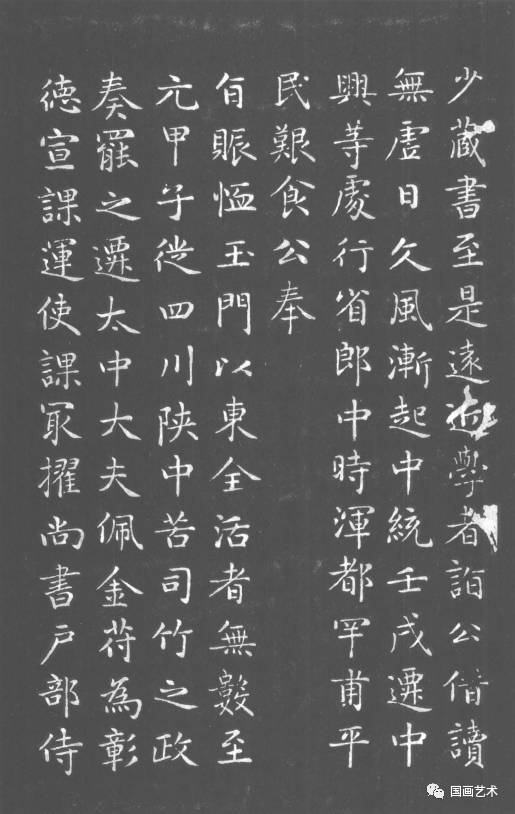 少蔵書至是遠近學者詣公借讀
無虚日久風漸起中統壬戌遷中
興等處行省郎中時渾都罕甫平
民艱食公奉
旨賑恤玉門以東全活者無數至
元甲子從四川陝中苦司竹之政
奏罷之遷太中大夫佩金苻為彰
德宣課運使課冣擢尚書戸部侍
国画艺术